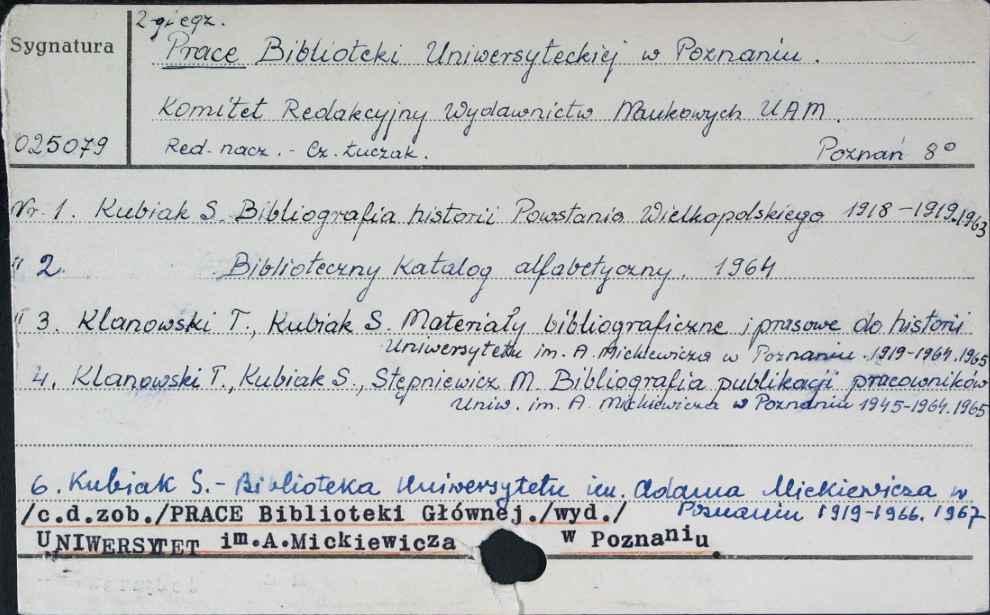 2-gi egz.
Sygnatura
Prace Biblioteki Uniwersyteckiej w Poznaniu.
Komitet Redakcyjny Wydawnictw Naukowych UAM.
025079
Red. nacz. - Cz. Łuczak.
Poznań 8°
Nr. 1. Kubiak S. Bibliografia historii Powstania Wielkopolskiego 1918-1919. 1963
" 2. Biblioteczny katalog alfabetyczny. 1964
" 3. Klanowski T., Kubiak S. Materiały bibliograficzne i prasowe do historii
Uniwersytetu im. A. Mickiewicza w Poznaniu. 1919-1964. 1965
4. Klanowski T., Kubiak S., Stępniewicz M. Bibliografia publikacji pracowników
Uniw. im. A. Mickiewicza w Poznaniu 1945-1964. 1965
6. Kubiak S. - Biblioteka Uniwersytetu im. Adama Mickiewicza w
Poznaniu 1919-1966. 1967
/c.d.zob./PRACE Biblioteki Głównej./wyd./
UNIWERSYTET im.A.Mickiewicza w Poznaniu.